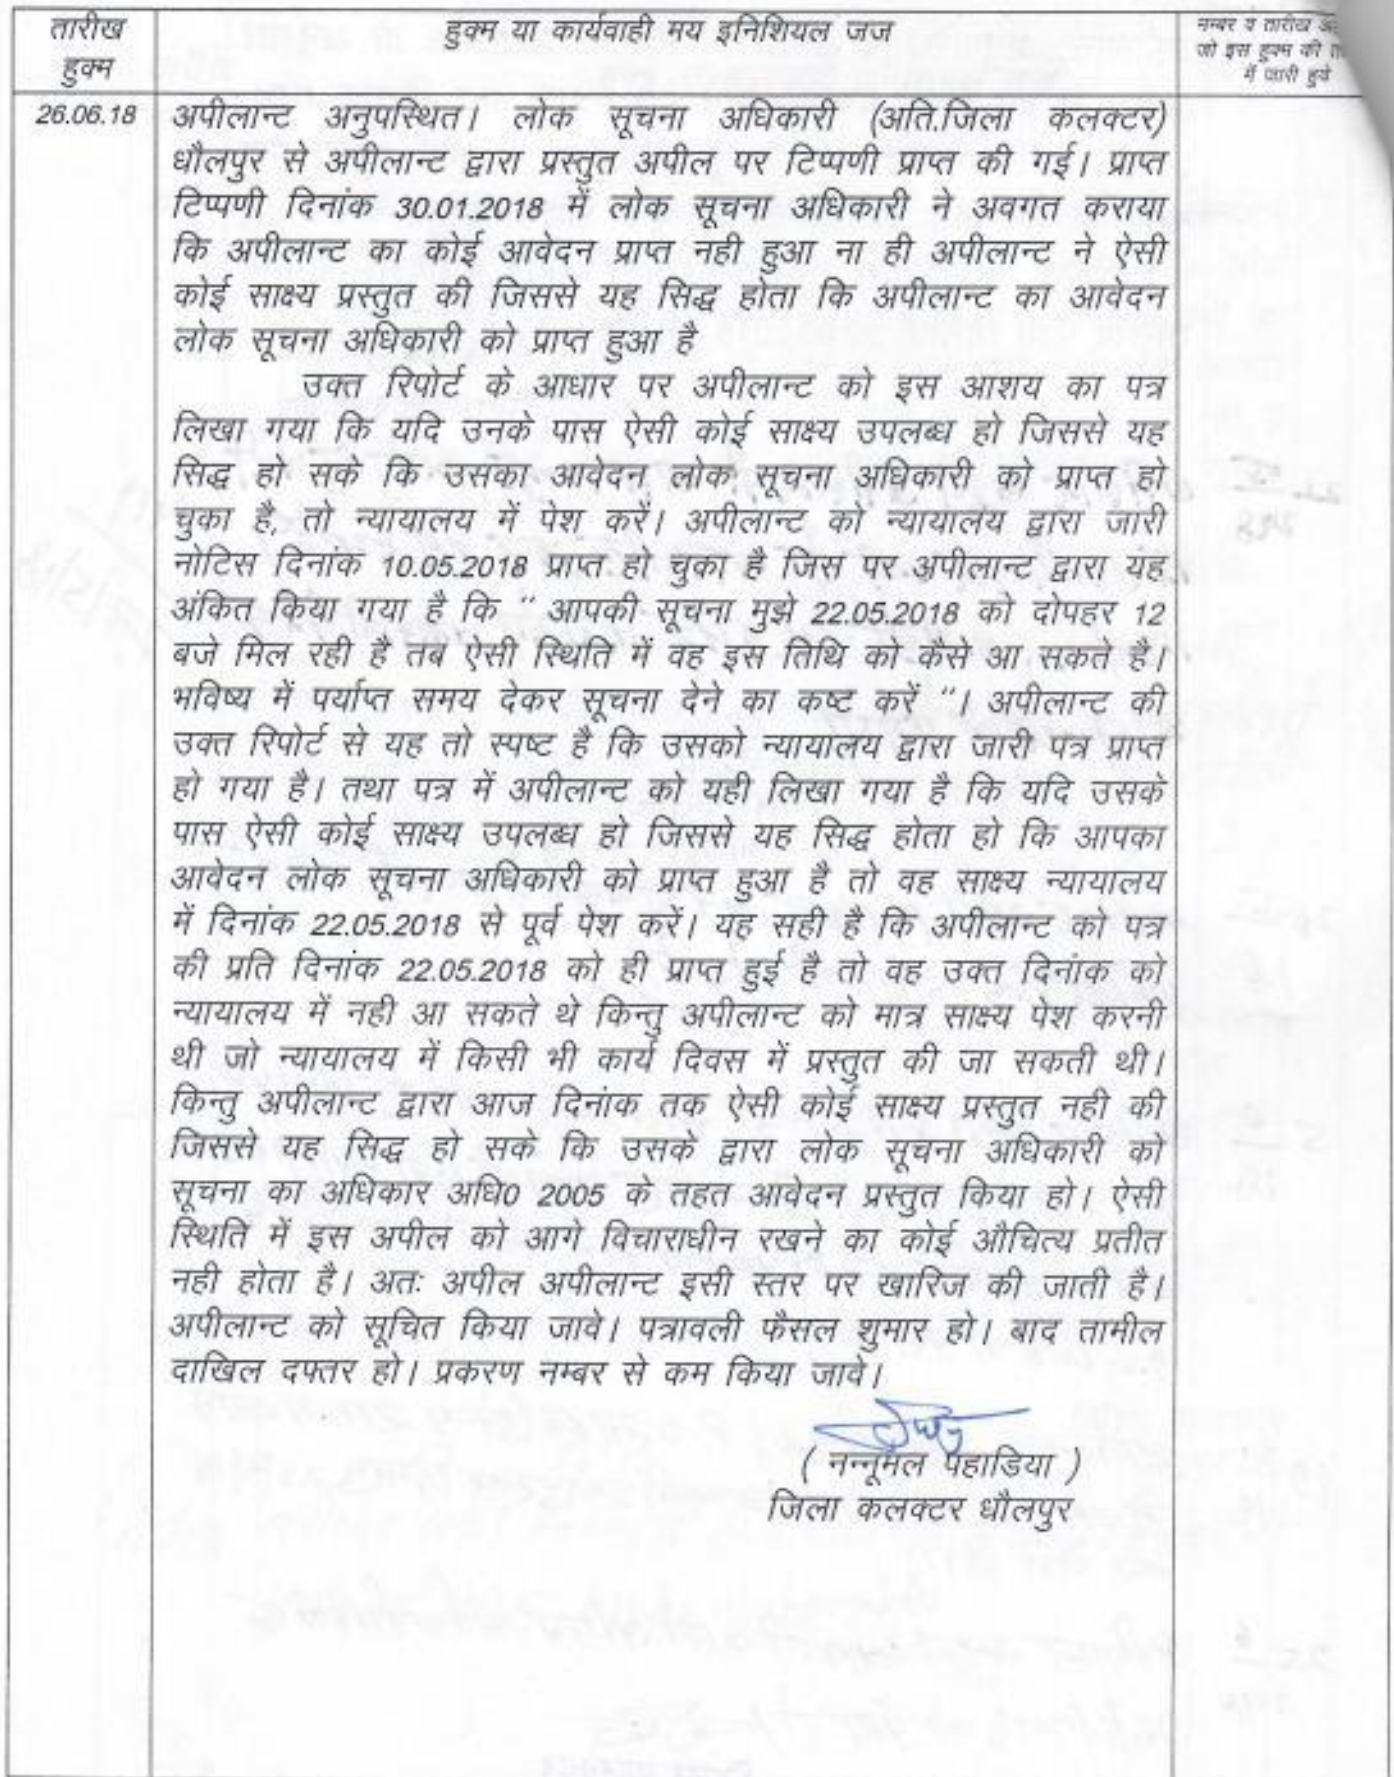 तारीख
हुक्म
हुक्म या कार्यवाही मय इनिशियल जज
नम्बर व तारीख
जो इस हुक्म की
में जारी हुये
26.06.18
अपीलान्ट अनुपस्थित। लोक सूचना अधिकारी (अति.जिला कलक्टर)
धौलपुर से अपीलान्ट द्वारा प्रस्तुत अपील पर टिप्पणी प्राप्त की गई। प्राप्त
टिप्पणी दिनांक 30.01.2018 में लोक सूचना अधिकारी ने अवगत कराया
कि अपीलान्ट का कोई आवेदन प्राप्त नही हुआ ना ही अपीलान्ट ने ऐसी
कोई साक्ष्य प्रस्तुत की जिससे यह सिद्ध होता कि अपीलान्ट का आवेदन
लोक सूचना अधिकारी को प्राप्त हुआ है
उक्त रिपोर्ट के आधार पर अपीलान्ट को इस आशय का पत्र
लिखा गया कि यदि उनके पास ऐसी कोई साक्ष्य उपलब्ध हो जिससे यह
सिद्ध हो सके कि उसका आवेदन लोक सूचना अधिकारी को प्राप्त हो
चुका है, तो न्यायालय में पेश करें। अपीलान्ट को न्यायालय द्वारा जारी
नोटिस दिनांक 10.05.2018 प्राप्त हो चुका है जिस पर अपीलान्ट द्वारा यह
अंकित किया गया है कि " आपकी सूचना मुझे 22.05.2018 को दोपहर 12
बजे मिल रही है तब ऐसी स्थिति में वह इस तिथि को कैसे आ सकते है।
भविष्य में पर्याप्त समय देकर सूचना देने का कष्ट करें "। अपीलान्ट की
उक्त रिपोर्ट से यह तो स्पष्ट है कि उसको न्यायालय द्वारा जारी पत्र प्राप्त
हो गया है। तथा पत्र में अपीलान्ट को यही लिखा गया है कि यदि उसके
पास ऐसी कोई साक्ष्य उपलब्ध हो जिससे यह सिद्ध होता हो कि आपका
आवेदन लोक सूचना अधिकारी को प्राप्त हुआ है तो वह साक्ष्य न्यायालय
में दिनांक 22.05.2018 से पूर्व पेश करें। यह सही है कि अपीलान्ट को पत्र
की प्रति दिनांक 22.05.2018 को ही प्राप्त हुई है तो वह उक्त दिनांक को
न्यायालय में नही आ सकते थे किन्तु अपीलान्ट को मात्र साक्ष्य पेश करनी
थी जो न्यायालय में किसी भी कार्य दिवस में प्रस्तुत की जा सकती थी।
किन्तु अपीलान्ट द्वारा आज दिनांक तक ऐसी कोई साक्ष्य प्रस्तुत नही की
जिससे यह सिद्ध हो सके कि उसके द्वारा लोक सूचना अधिकारी को
सूचना का अधिकार अधि0 2005 के तहत आवेदन प्रस्तुत किया हो। ऐसी
स्थिति में इस अपील को आगे विचाराधीन रखने का कोई औचित्य प्रतीत
नही होता है। अतः अपील अपीलान्ट इसी स्तर पर खारिज की जाती है।
अपीलान्ट को सूचित किया जावे। पत्रावली फैसल शुमार हो। बाद तामील
दाखिल दफ्तर हो। प्रकरण नम्बर से कम किया जावे।
( नन्नूमल पहाडिया )
जिला कलक्टर धौलपुर